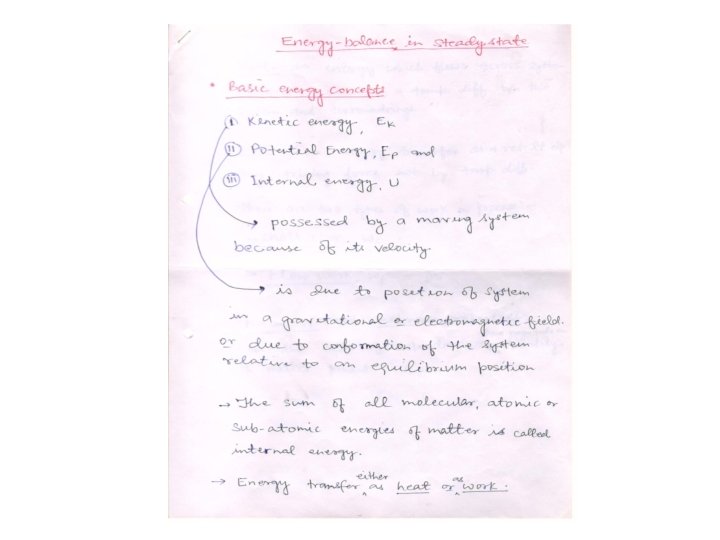 Energy-balance in steady state
* Basic energy concepts
(i) Kenetic energy, EK
(ii) Potential Energy, EP and
(iii) Internal energy, U
→ possessed by a moving system
because of its velocity.
→ is due to position of system
in a gravitational or electromagnetic field.
or due to conformation of the system
relative to an equilibrium position
→ The sum of all molecular, atomic or
sub-atomic energies of matter is called
internal energy.
→ Energy transfer either as heat or as work.